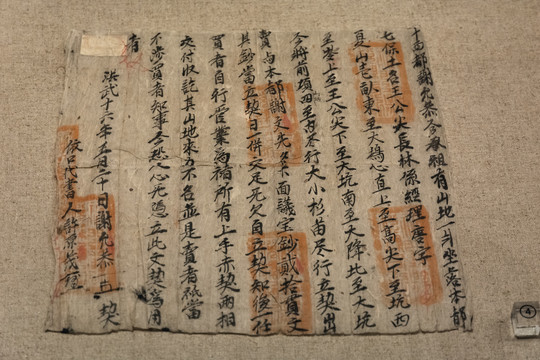 十西都謝允恭今承祖有山地一片坐落本都
七保土名王公尖長林係經理唐字
夏山壹畝東至大塢心直上至高尖下至坑西
至壟上至王公尖下至大坑南至大降北至大坑
今將前項四至內本行大小杉苗尽行立契出
賣与本都謝文先名下面議宝鈔貳拾貫文
其鈔當立契日一併交足无欠自立契後一任
買者自行管業為主所有上手赤契
交付收訖其山地來力不名並是賣者祗當
不涉買者知事今恐人心无憑立此文契為用
者
洪武十六年五月二十日謝允恭 契
依口代書人許景
④